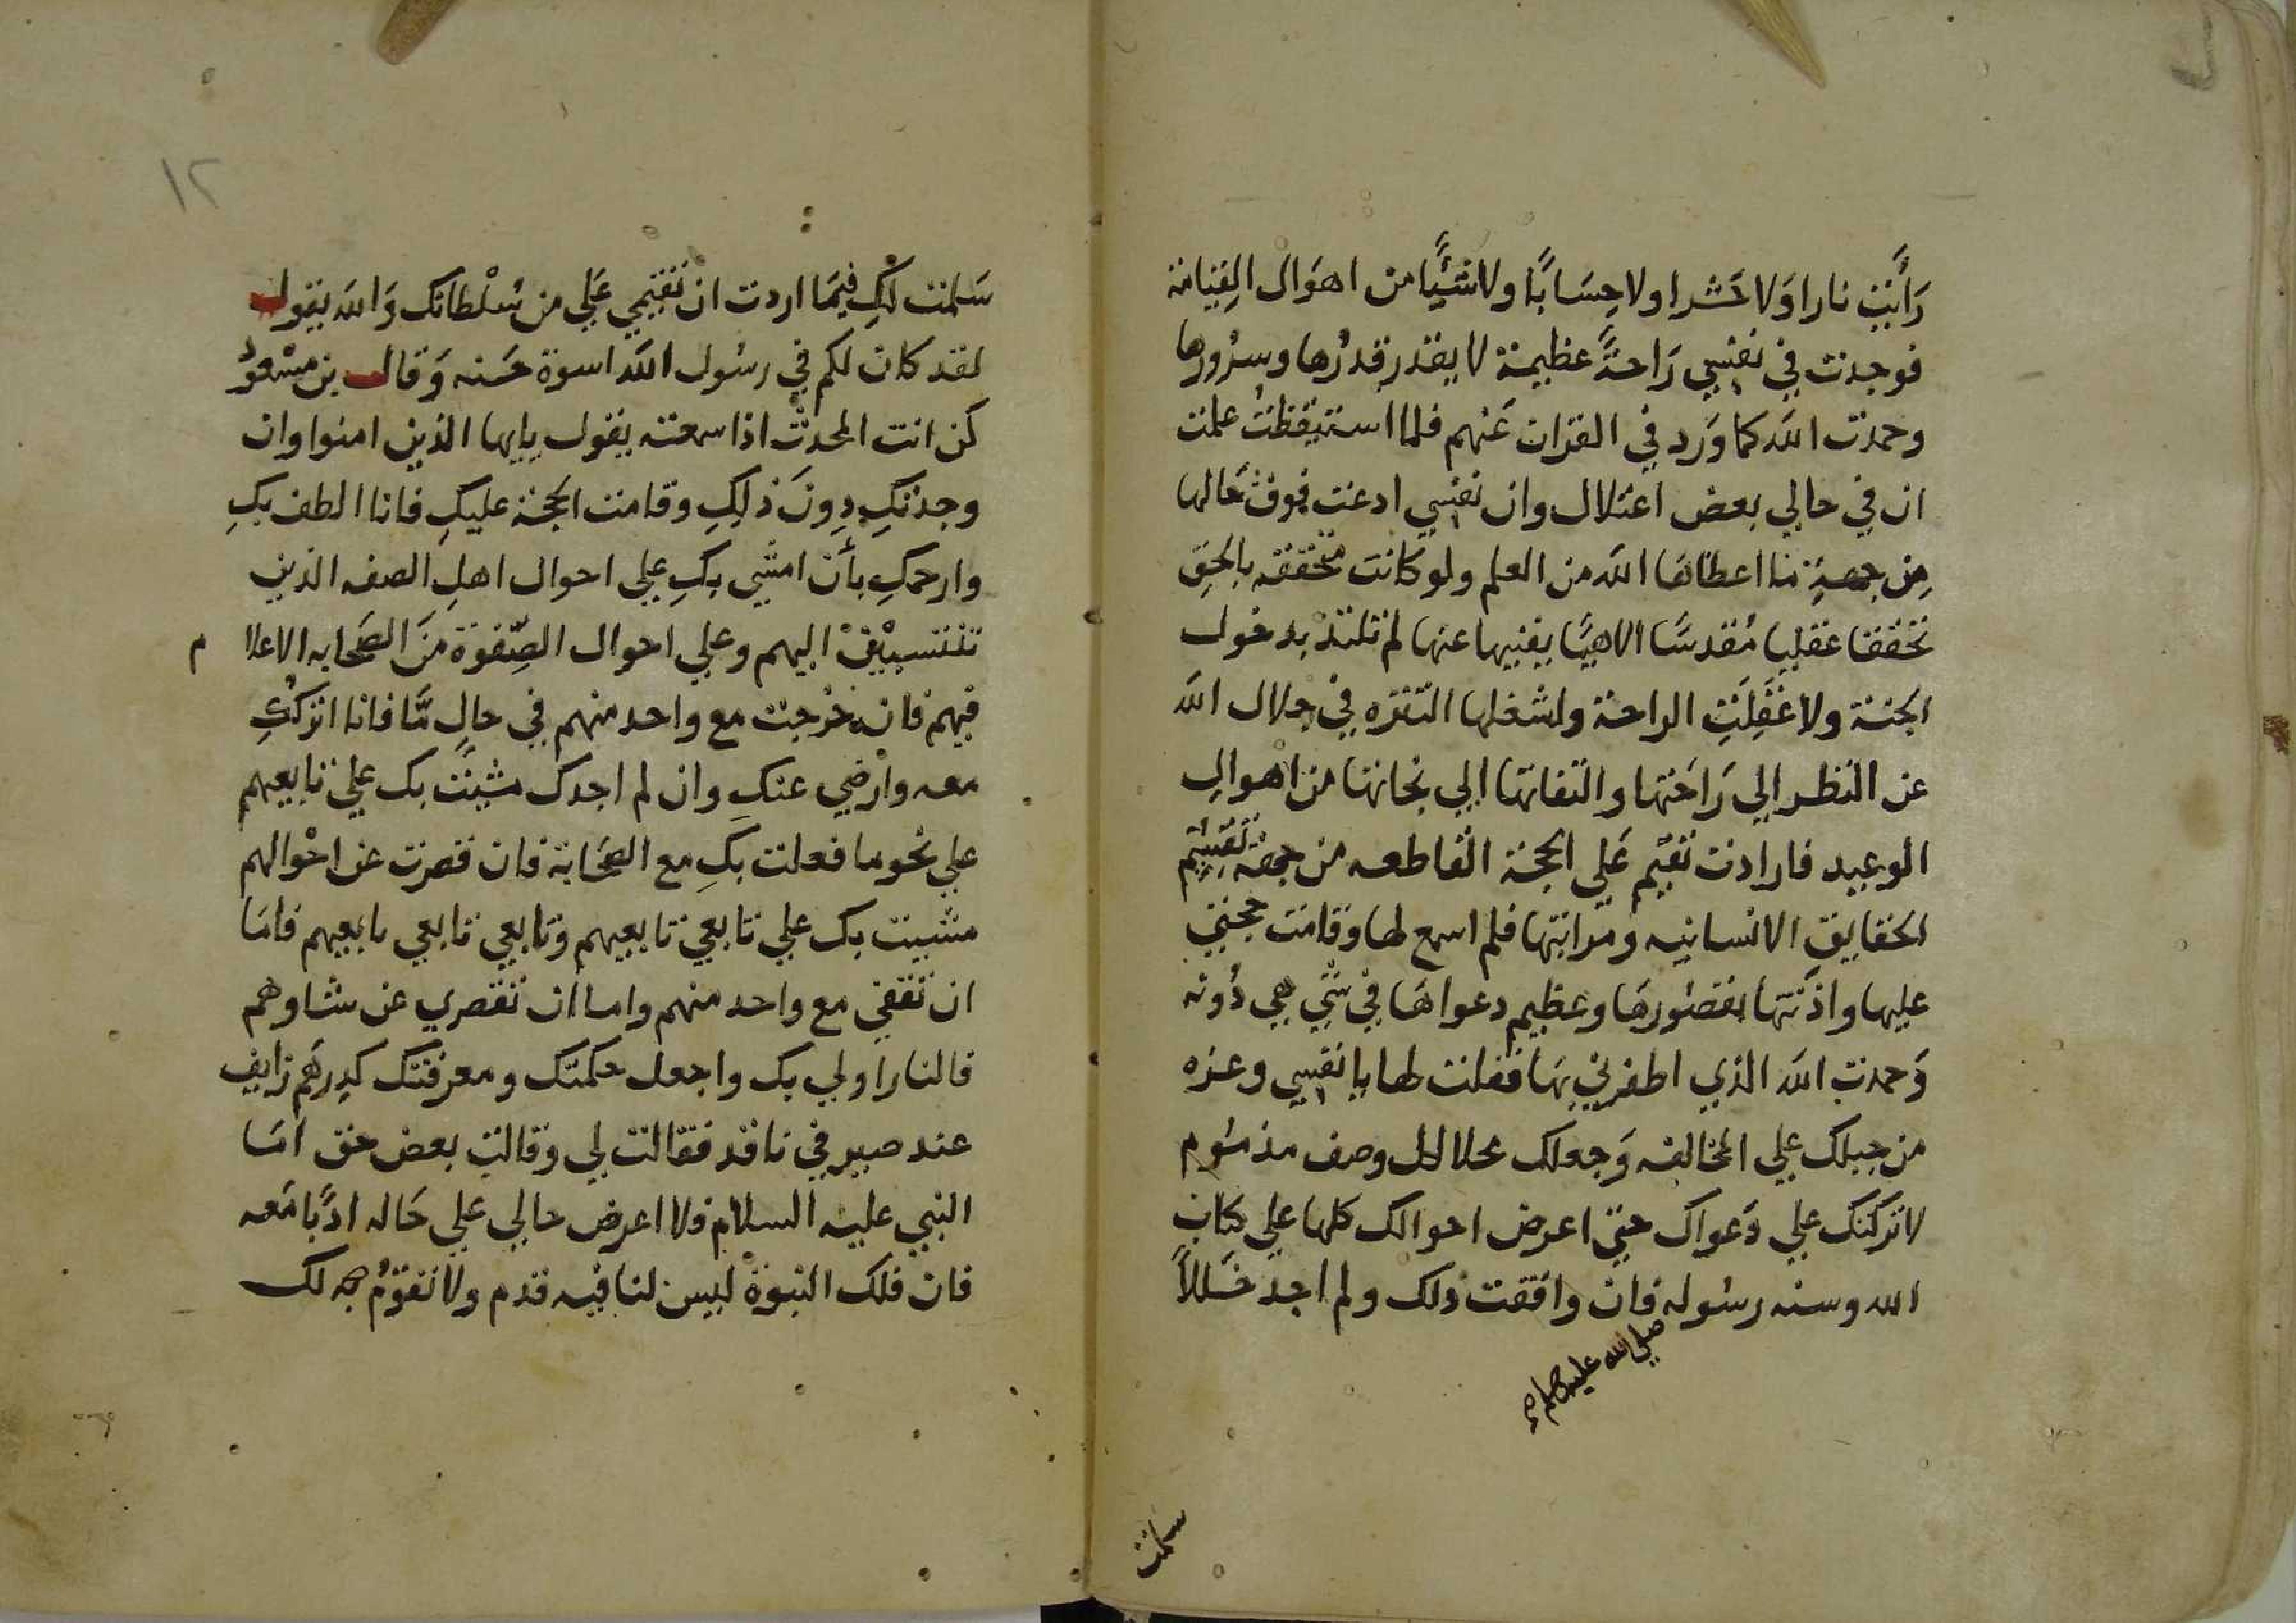 رَأَيتَ نارا وَلا حَشرا ولا حِسَابًا ولا شيًّا من اهوَال القِيَامة
فوجدت في نفسي رَاحةً عظيمة لا يقدر قدرُها وسرُورها
وحمدت الله كما وَرد في القران عَنهم فلما استيقظتُ علمت
ان في حالي بعض اعتلال وان نفسي ادعت فوق حَالها
مِن جهةِ ما اعطاهَا الله من العلم ولو كانت متحققه بالحق
تحققا عقليا مُقدسًا الاهيًا يفنيها عنها لم تلتذ بدخول
الجنة ولا عَقِلَتِ الراحة ولشغلها التنزه في جلال الله
عن النظر الي رَاحَتها والتفاتها الي نجاتها من اهوالِ
الوعيد فارادت تقيم عَلي الحجة القاطعه من جهة تقسيم
الحقايق الانسانيه ومراتبها فلم اسمع لها وقامَت حجتي
عليها واذنتها بقصُورهَا وعظيم دعواهَا في شي هي دُونه
وَحمدت الله الذي اظفرني بهَا فقلت لها يا نفسي وعزه
من جبلك علي المخالفه وَجعلك محلا لكل وصف مذمُوم
لا تركتك علي دَعواك حتي اعرض احوالك كلها علي كتاب
الله وسنه رسُوله فان وافقت ذلك ولم اجد خَللاً
صلي الله عليه وسلم
سلمت
١٢
سَلمت لكِ فيمَا اردت ان تقيمي عَلي من سُلْطانك وَالله يقول
لقد كان لكم في رسُول الله اسوة حَسنه وَقال بن مسْعودُ
كن انت المحدث اذا سمعته يقول يايها الذين امنوا وان
وجدتكِ دِونَ ذلِكِ وقامت الحجة عليكِ فانا الطف بكِ
وارحمكِ بأن امشي بكِ علي احوال اهلِ الصفه الذين
تنتسبين اليهم وعلي احوال الصِّفوة مَن الصَحابه الاعلام
فيهم فان خَرجتِ مع واحد منهم في حالٍ مَّا فانا اتركُكِ
معه وارضي عنكِ وان لم اجدك مشيت بك علي تابعيهم
علي نحو ما فعلت بكِ مع الصحَابة فان قصرت عن احْوالهم
مشيت بك علي تابعي تابعيهم وتابعي تابعي تابعيهم فامَا
ان تقفي مع واحد منهم واما ان تقصري عن شاوهم
فالنار اولي بك واجعل حكمتك ومعرفتك كدِرهَم زايف
عند صيرفي ناقد فقالت لي وقالت بعض حق امَا
النبي عليه السلام فلا اعرض حالي علي حَاله ادبًا مَعه
فان فلك النبوة ليس لنا فيه قدم ولا تقوّمُ به لك